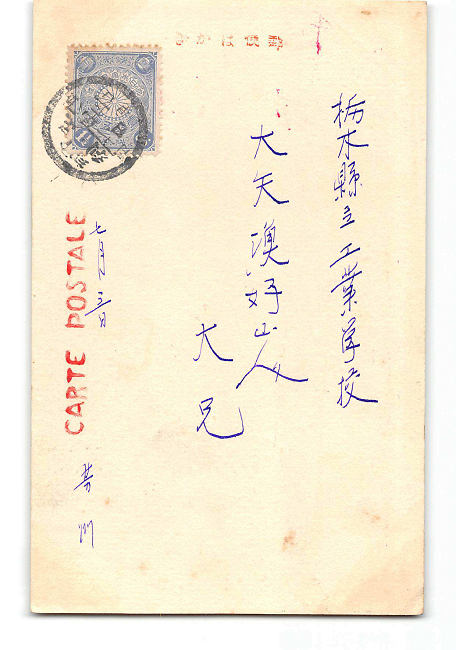 郵便はかき
栃木縣立工業学校
大矢澳好山人
大兄
七月三日
芳州
CARTE POSTALE